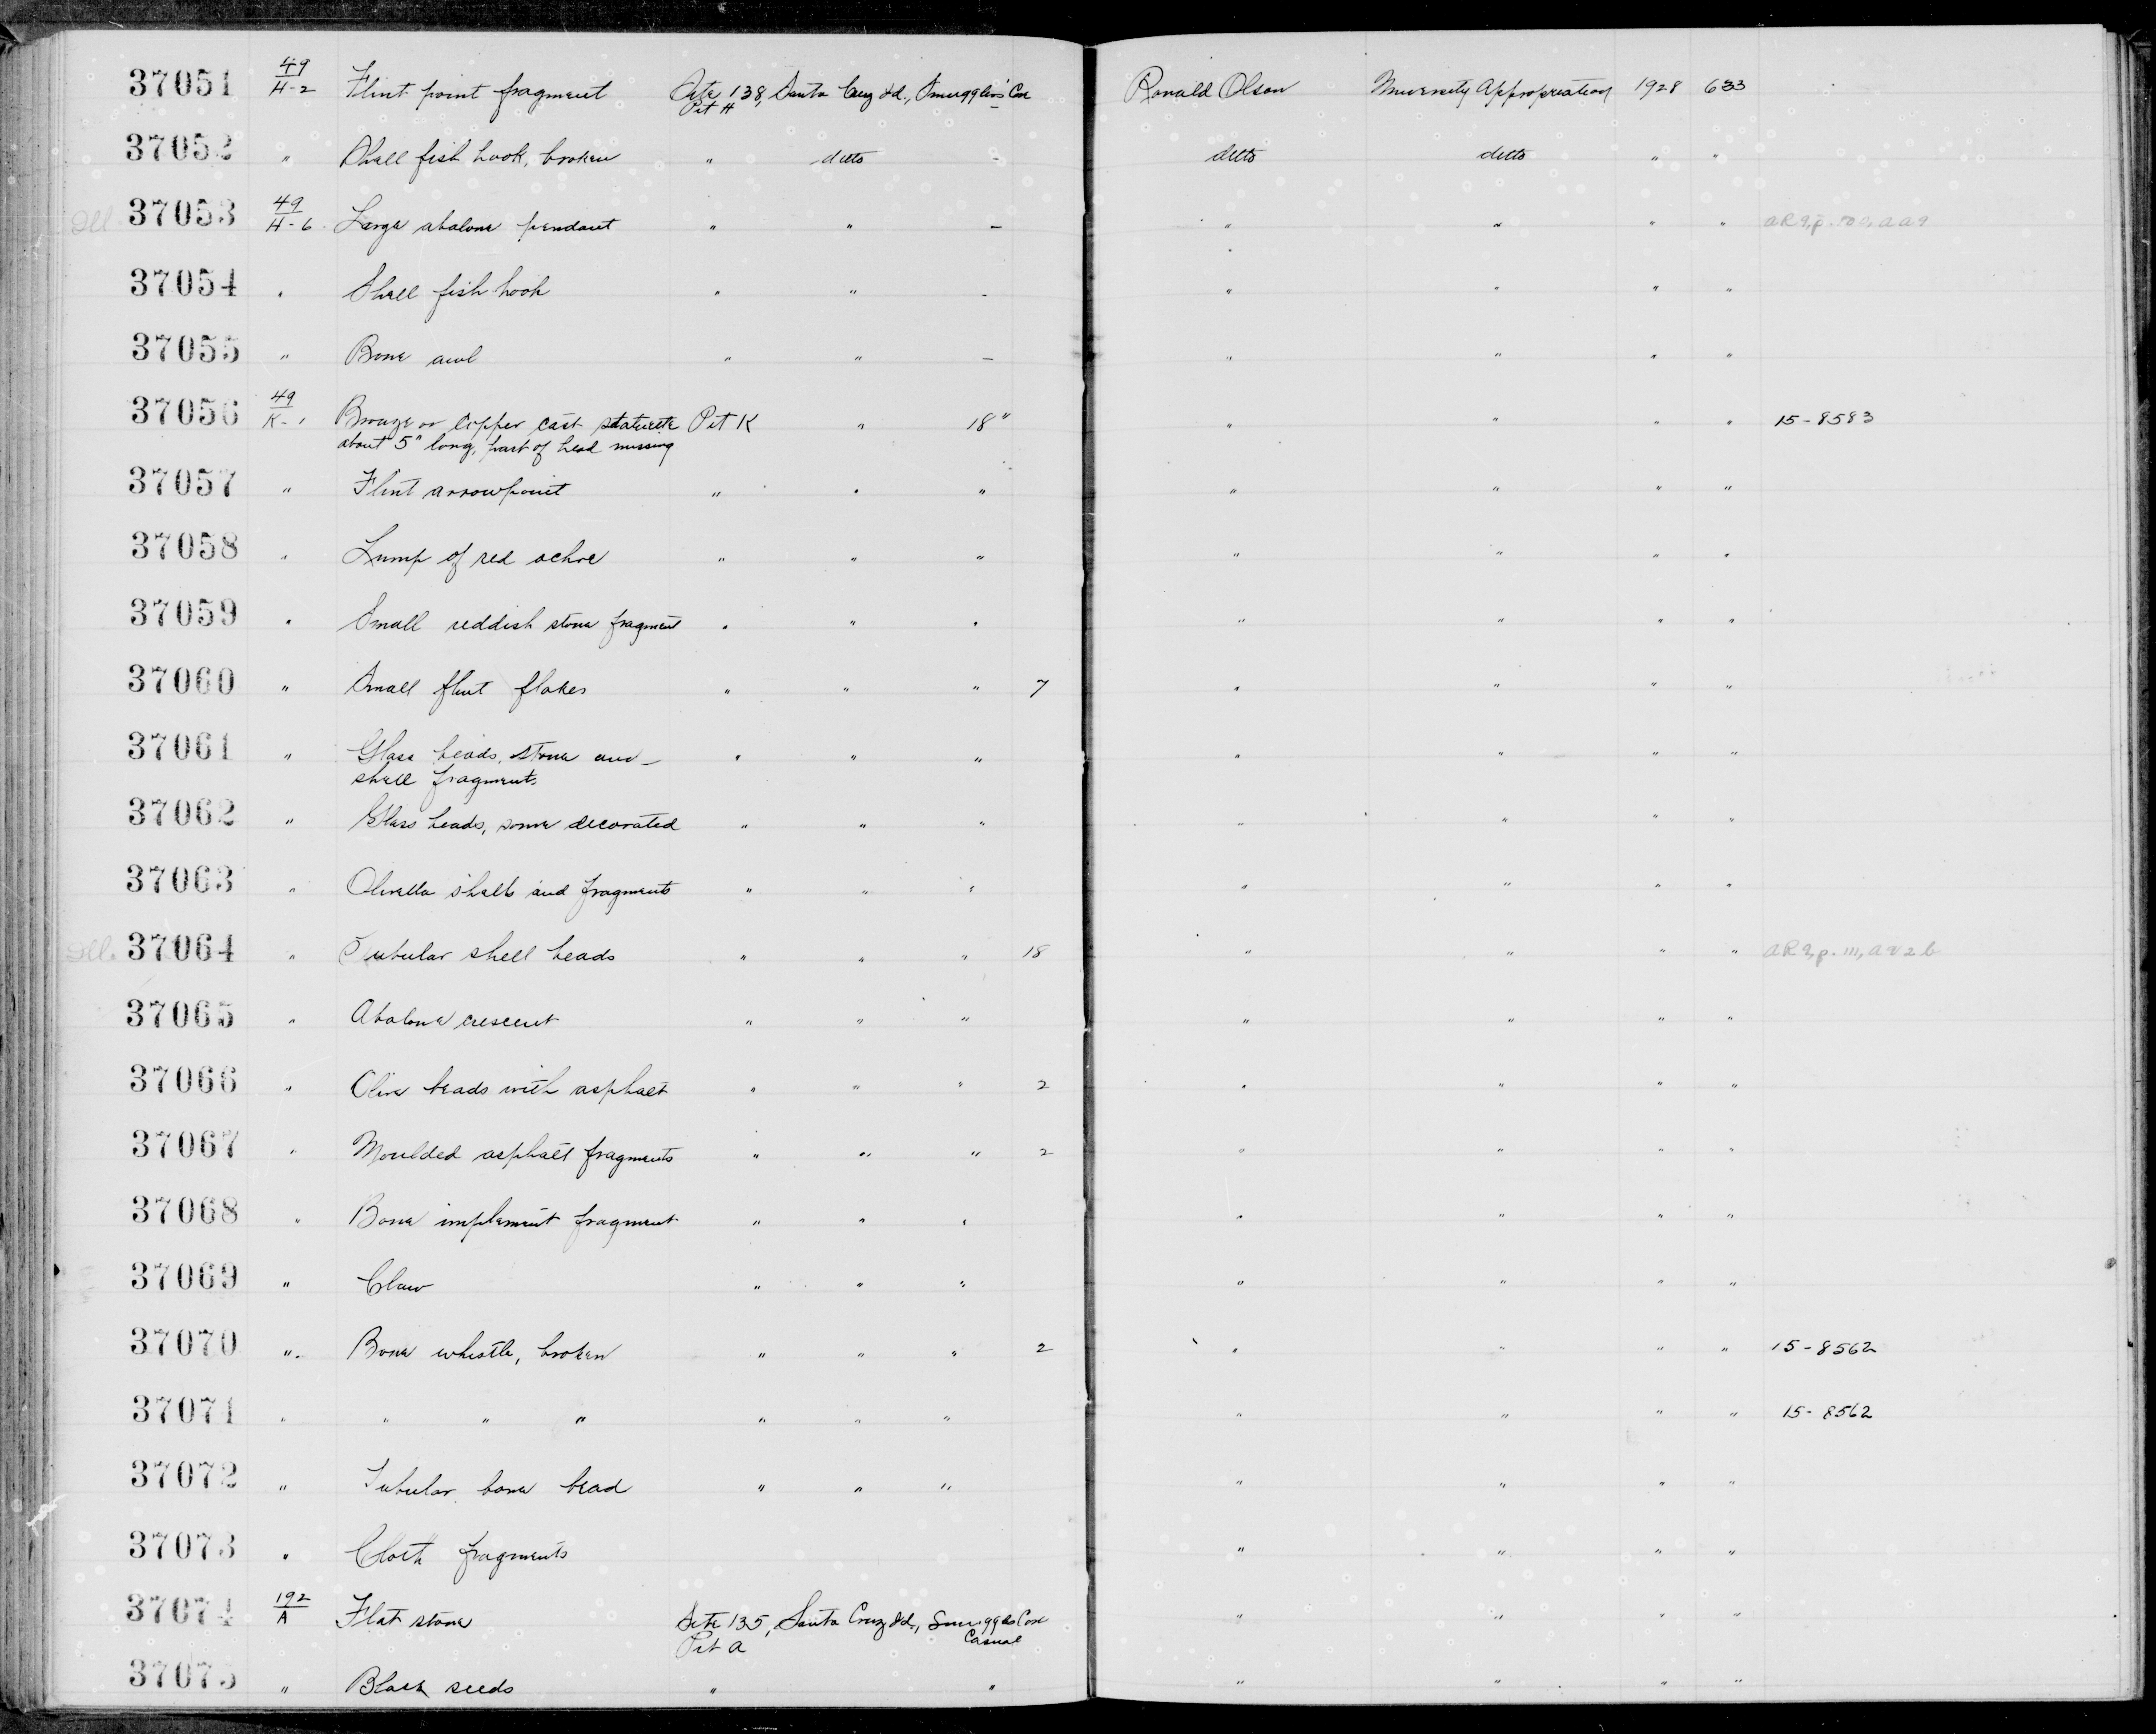 37051 49/H-2 Flint point fragment Site 138, Santa Cruz Id., Smugglers' Cove Pit H - Ronald Olson University Appropriation 1928 633
37052 " Shell fish hook, broken " ditto - ditto ditto " "
Ill. 37053 49/H-6 Large abalone pendant " " - " " " "
37054 " Shell fish hook " " - " " " "
37055 " Bone awl " " - " " " "
37056 49/K-1 Bronze or Copper cast statuette Pit K " 18" " " " " 15-8583
about 5" long, part of head missing
37057 " Flint arrowpoint " " " " " " "
37058 " Lump of red ochre " " " " " " "
37059 " Small reddish stone fragment " " " " " " "
37060 " Small flint flakes " " " 7 " " " "
37061 " Glass beads, stone and " " " " " " "
shell fragments
37062 " Glass beads, some decorated " " " " " " "
37063 " Olivella shells and fragments " " " " " " "
Ill. 37064 " Tubular shell beads " " " 18 " " " " AR 9, p. 111, a v 2 b
37065 " Abalone crescent " " " " " " "
37066 " Olive beads with asphalt " " " 2 " " " "
37067 " Moulded asphalt fragments " " " 2 " " " "
37068 " Bone implement fragment " " " " " " "
37069 " Claw " " " " " " "
37070 " Bone whistle, broken " " " 2 " " " " 15-8562
37071 " " " " " " " " " " " 15-8562
37072 " Tubular bone bead " " " " " " "
37073 " Cloth fragments " " " "
37074 192/A Flat stone Site 135, Santa Cruz Id., Smugglers Cove " " " "
Pit A Casual
37075 " Black seeds " " " " " "